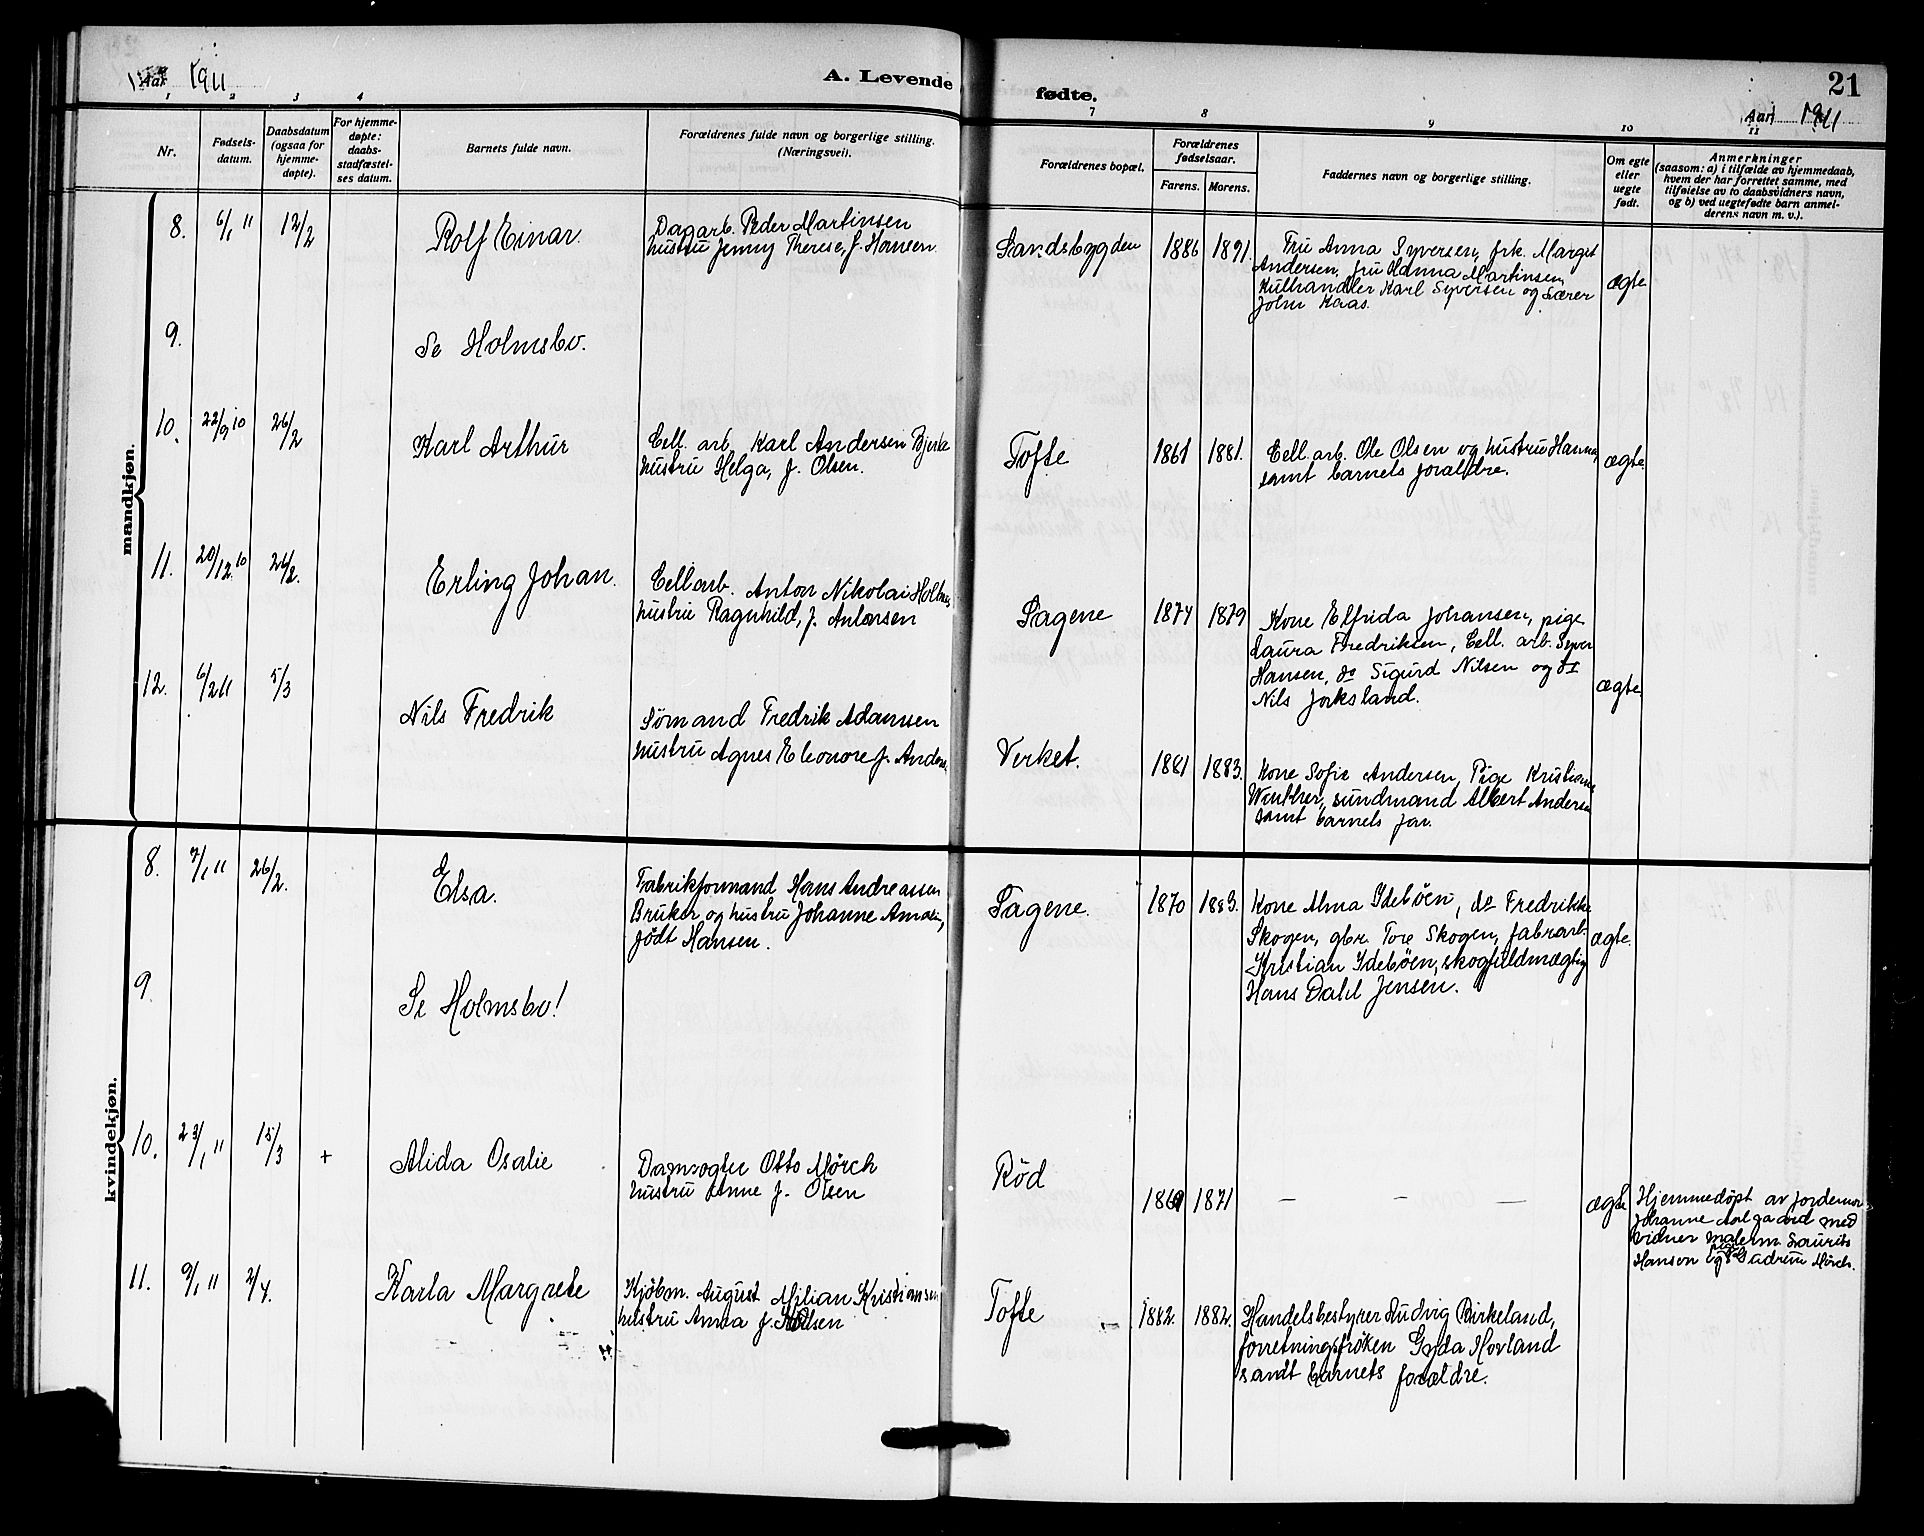 Aar 1911
A. Levende
fødte.
21
Aar 1911
1 2 3 4
7 8 9 10 11
Nr.
Fødsels-
datum.
Daabsdatum
(ogsaa for
hjemme-
døpte).
For hjemme-
døpte:
daabs-
stadfæstel-
ses datum.
Barnets fulde navn.
Forældrenes fulde navn og borgerlige stilling.
(Næringsvei).
Forældrenes bopæl.
Forældrenes
fødselsaar.
Farens. Morens.
Faddernes navn og borgerlige stilling.
Om egte
eller
uegte
født.
Anmerkninger
(saasom: a) i tilfælde av hjemmedaab,
hvem der har forrettet samme, med
tilføielse av to daabsvidners navn,
og b) ved uegtefødte barn anmel-
derens navn m. v.).
mandkjøn.
8. 6/1 11 12/2 Rolf Einar.
Dagarb. Peder Martinsen
hustru Jenny Therese, f. Hansen.
Sandsbygden 1886 1891.
Fru Anna Syversen, frk. Margit
Andersen, fru Hanna Martinsen,
Kulhandler Karl Syversen og Lærer
John Kaas.
ægte
9. Se Holmsbo.
10. 22/9 10 26/2 Karl Arthur
Cell. arb. Karl Andersen Bjerke
hustru Helga, f. Olsen.
Tofte 1861 1881.
Cell. arb. Ole Olsen og hustru Hanna,
samt barnets forældre.
ægte.
11. 20/12 10 26/2. Erling Johan.
Cell arb. Anton Nikolai Holtnes
hustru Ragnhild, f. Antonsen
Sagene 1874 1879
Kone Elfrida Johansen, pige
Laura Fredriksen, Cell. arb. Syver
Hansen, do Sigurd Nilsen og do
Nils Jorksland.
ægte.
12. 6/2 11 5/3 Nils Fredrik
Sømand Fredrik Adamsen
hustru Agnes Eleonore f. Anders.
Verket. 1881 1883.
Kone Sofie Andersen, Pige Kristiane
Winther, sundmand Albert Andersen
samt barnets far.
kvindekjøn.
8. 7/1 11 26/2. Elsa.
Fabrikformand Hans Andreassen
Bruker, og hustru Johanne Amalie,
født Hansen.
Sagene. 1870 1883.
Kone Alma Idebøen, do Fredrikke
Skogen, gbr. Tore Skogen, fabrarb.
Kristian Idebøen, skogfuldmægtig
Hans Dahl Jensen.
ægte.
9. Se Holmsbo!
10. 23/1 11 15/3 + Alida Osalie
Damvogter Otto Mørch
hustru Anne f. Olsen
Rød 1869 1871 — — —
ægte
Hjemmedøpt av jordemor
Johanne Aalgaard med
vidner malerm. Laurits
Hansen og pige Gudrun Mørch.
11. 9/1 11 2/4. Karla Margrete
Kjøbm. August Milian Kristiansen
hustru Anna f. Olsen
Tofte 1882. 1882.
Handelsbestyrer Ludvig Birkeland,
forretningsfrøken Gyda Hovland
samt barnets forældre.